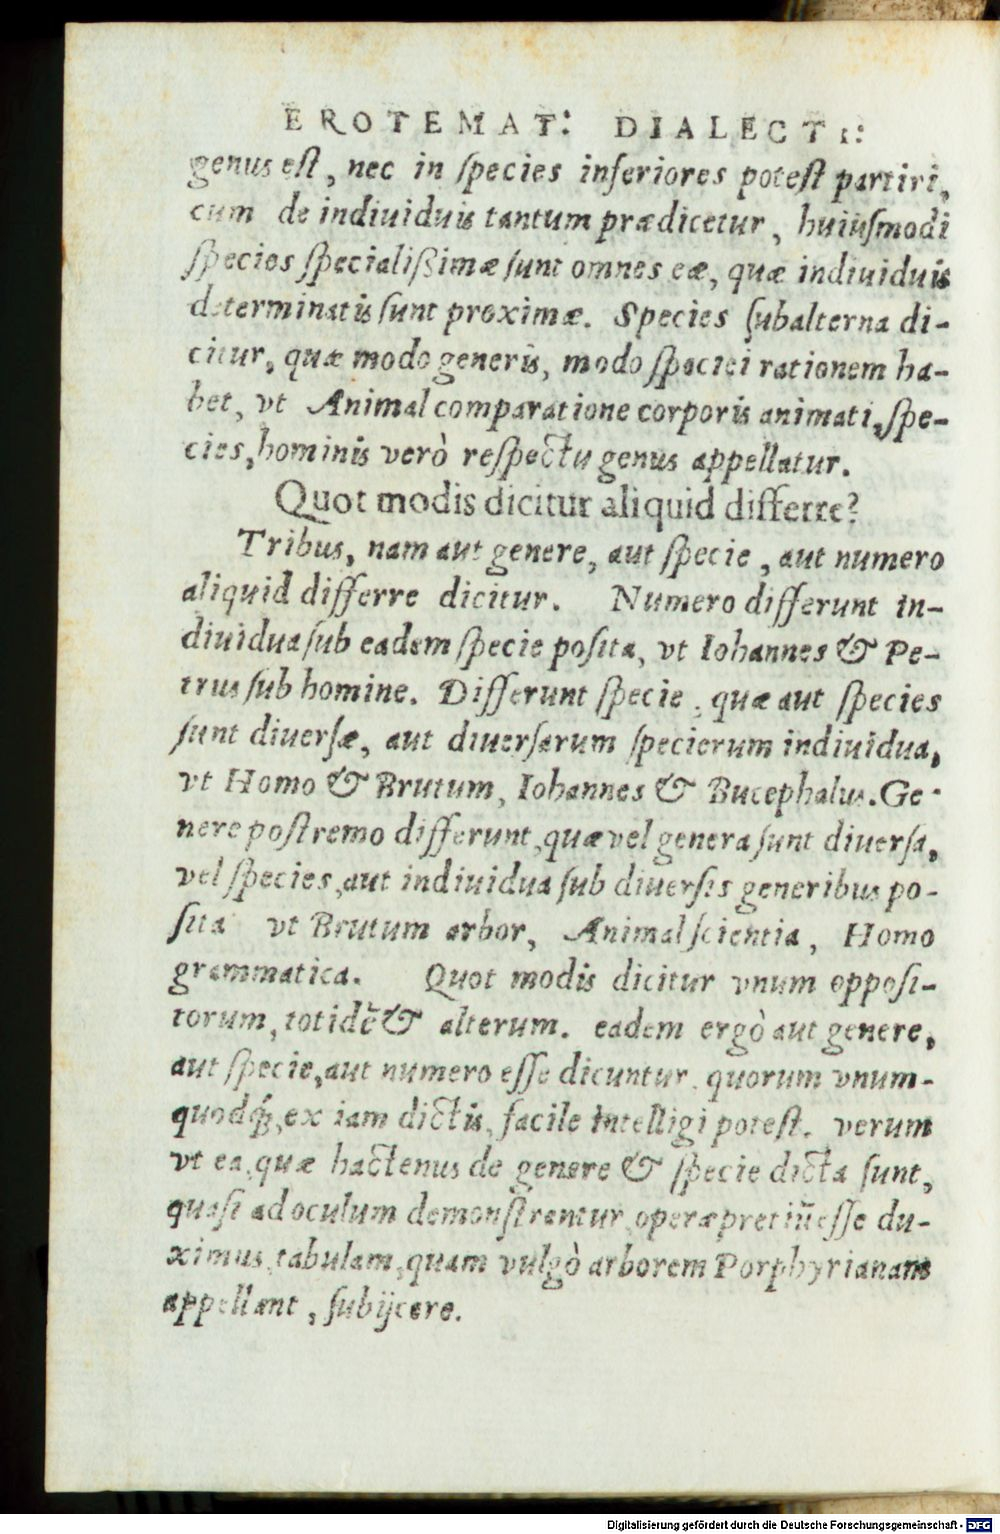 EROTEMAT: DIALECTI:
genus eſt, nec in ſpecies inferiores poteſt partiri,
cum de indiuiduis tantum prædicetur, huiuſmodi
ſpecies ſpecialißimæ ſunt omnes eæ, quæ indiuiduis
determinatis ſunt proximæ. Species ſubalterna di-
citur, quæ modo generis, modo ſpeciei rationem ha-
bet, vt Animal comparatione corporis animati, ſpe-
cies, hominis verò reſpectu genus appellatur.
Quot modis dicitur aliquid differre?
Tribus, nam aut genere, aut ſpecie, aut numero
aliquid differre dicitur. Numero differunt in-
diuidua ſub eadem ſpecie poſita, vt Iohannes & Pe-
trus ſub homine. Differunt ſpecie, quæ aut ſpecies
ſunt diuerſæ, aut diuerſarum ſpecierum indiuidua,
vt Homo & Brutum, Iohannes & Bucephalus. Ge-
nere poſtremo differunt, quæ vel genera ſunt diuerſa,
vel ſpecies, aut indiuidua ſub diuerſis generibus po-
ſita vt Brutum arbor, Animal ſcientia, Homo
grammatica. Quot modis dicitur vnum oppoſi-
torum, totidē & alterum. eadem ergò aut genere,
aut ſpecie, aut numero eſſe dicuntur, quorum vnum-
quodq́, ex iam dictis, facile intelligi poteſt. verum
vt ea, quæ hactenus de genere & ſpecie dicta ſunt,
quaſi ad oculum demonſtrentur, operæpretiū eſſe du-
ximus, tabulam, quam vulgò arborem Porphyrianam
appellant, ſubijcere.
Digitalisierung gefördert durch die Deutsche Forschungsgemeinschaft - DFG